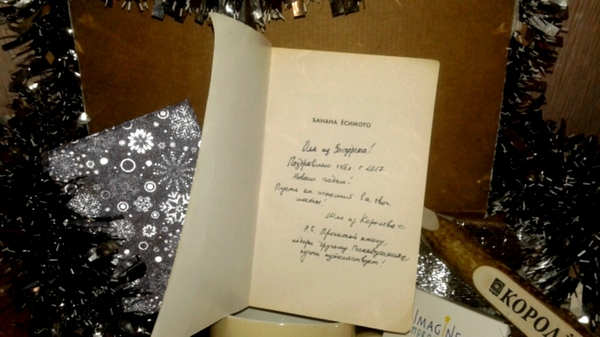 БАНАНА ЁСИМОТО
Оля из
Поздравляю тебя с 2017
Новым годом!
Пусть он исполнит твои
мечты!
Юля из Королёва
P.S. Прочитай книгу,
подари другому Пикабушнику
пусть путешествует!
КОРОЛ
IMAGINE